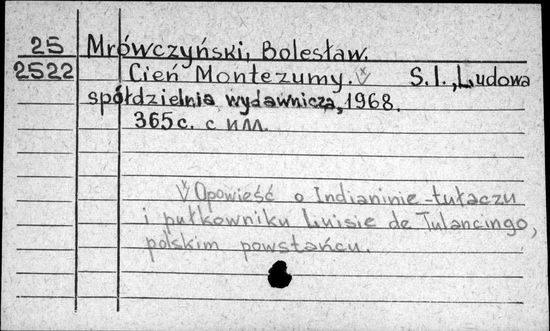 25 Mrówczyński, Bolesław.
2522 Cień Montezumy. V S.l., Ludowa
spółdzielnia wydawnicza, 1968.
365c. с илл.
V Opowieść o Indianinie-tułaczu
i pułkowniku Luisie de Tulancingo,
polskim powstańcu.